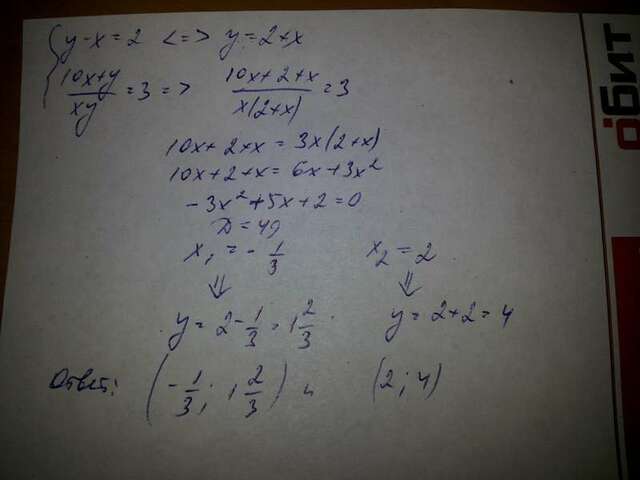 y-x=2 <=> y=2+x
(10x+y)/(xy) =3 => (10x+2+x)/(x(2+x)) =3
10x+2+x=3x(2+x)
10x+2+x=6x+3x²
-3x²+5x+2=0
D=49
x₁=-1/3 x₂=2
⇓ ⇓
y=2-1/3=1 2/3 y=2+2=4
Ответ: (-1/3; 1 2/3) и (2; 4)
обит